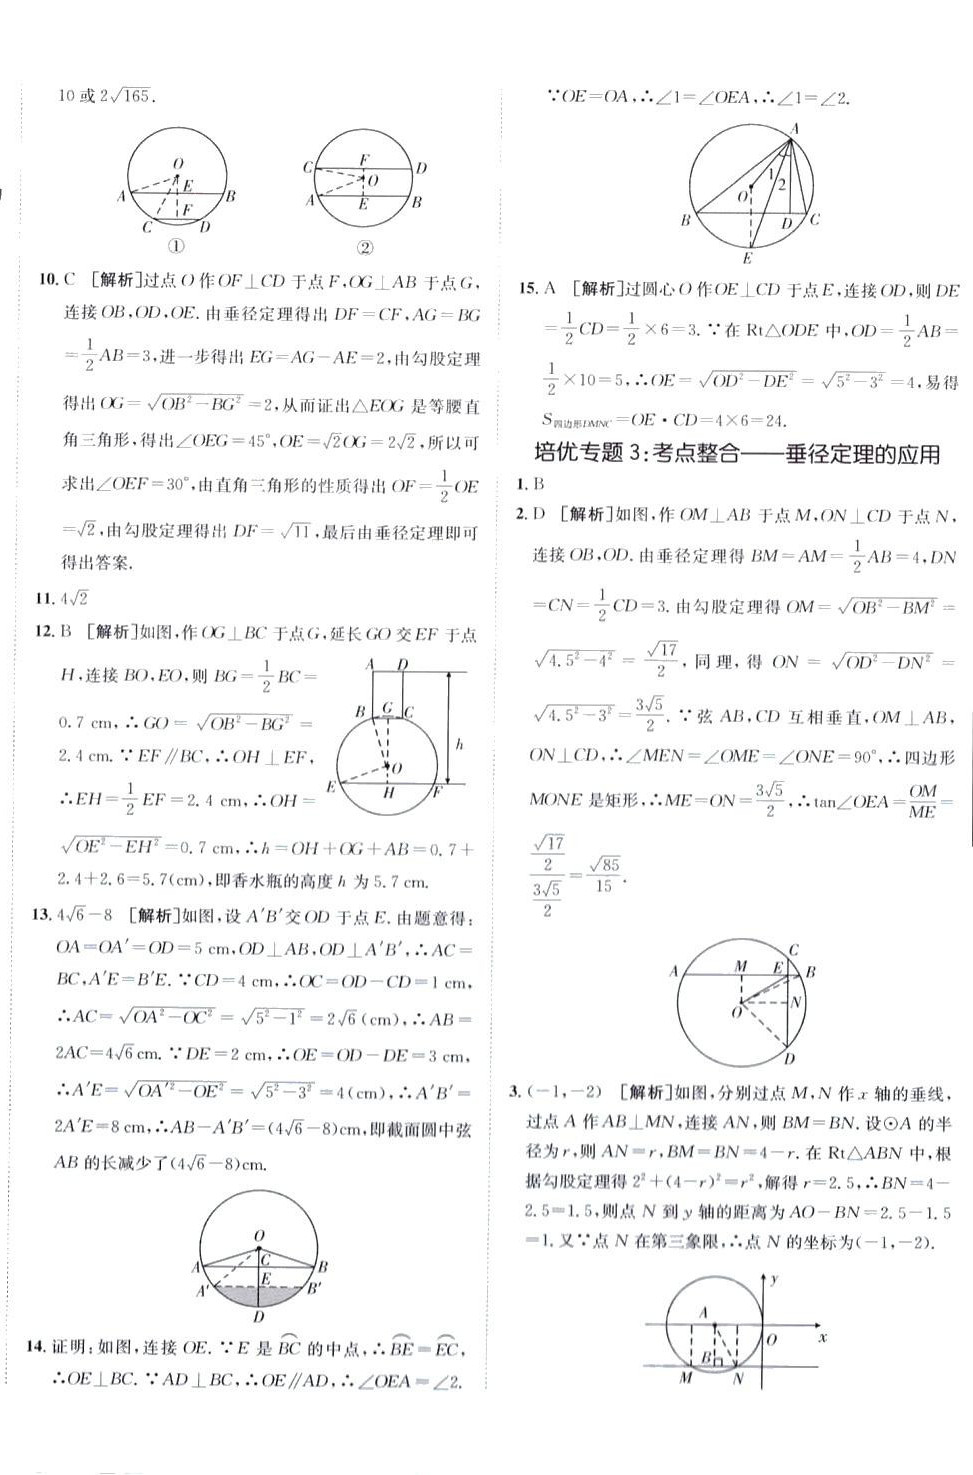 10或2√165.
A
O
E
B
C
F
D
①
C
F
D
O
A
E
B
②
10. C [解析]过点O作OF⊥CD于点F,OG⊥AB于点G,
连接OB,OD,OE.由垂径定理得出DF=CF,AG=BG
=1/2AB=3,进一步得出EG=AG-AE=2,由勾股定理
得出OG=√(OB²-BG²)=2,从而证出△EOG是等腰直
角三角形,得出∠OEG=45°,OE=√2OG=2√2,所以可
求出∠OEF=30°,由直角三角形的性质得出OF=1/2OE
=√2,由勾股定理得出DF=√11,最后由垂径定理即可
得出答案.
11. 4√2
12. B [解析]如图,作OG⊥BC于点G,延长GO交EF于点
H,连接BO,EO,则BG=1/2BC=
0.7 cm,∴GO=√(OB²-BG²)=
2.4 cm.∵EF∥BC,∴OH⊥EF,
∴EH=1/2EF=2.4 cm,∴OH=
√(OE²-EH²)=0.7 cm,∴h=OH+OG+AB=0.7+
2.4+2.6=5.7(cm),即香水瓶的高度h为5.7 cm.
A
D
B
G
C
h
O
E
H
F
13. 4√6-8 [解析]如图,设A′B′交OD于点E.由题意得:
OA=OA′=OD=5 cm,OD⊥AB,OD⊥A′B′,∴AC=
BC,A′E=B′E.∵CD=4 cm,∴OC=OD-CD=1 cm,
∴AC=√(OA²-OC²)=√(5²-1²)=2√6(cm),∴AB=
2AC=4√6 cm.∵DE=2 cm,∴OE=OD-DE=3 cm,
∴A′E=√(OA′²-OE²)=√(5²-3²)=4(cm),∴A′B′=
2A′E=8 cm,∴AB-A′B′=(4√6-8)cm,即截面圆中弦
AB的长减少了(4√6-8)cm.
O
A
C
B
A′
E
B′
D
14. 证明:如图,连接OE.∵E是BC⌒的中点,∴BE⌒=EC⌒,
∴OE⊥BC.∵AD⊥BC,∴OE∥AD,∴∠OEA=∠2.
∵OE=OA,∴∠1=∠OEA,∴∠1=∠2.
A
1
2
O
B
D
C
E
15. A [解析]过圆心O作OE⊥CD于点E,连接OD,则DE
=1/2CD=1/2×6=3.∵在Rt△ODE中,OD=1/2AB=
1/2×10=5,∴OE=√(OD²-DE²)=√(5²-3²)=4,易得
S四边形DMNC=OE·CD=4×6=24.
培优专题3:考点整合——垂径定理的应用
1. B
2. D [解析]如图,作OM⊥AB于点M,ON⊥CD于点N,
连接OB,OD.由垂径定理得BM=AM=1/2AB=4,DN
=CN=1/2CD=3.由勾股定理得OM=√(OB²-BM²)=
√(4.5²-4²)=√17/2,同理,得ON=√(OD²-DN²)=
√(4.5²-3²)=3√5/2.∵弦AB,CD互相垂直,OM⊥AB,
ON⊥CD,∴∠MEN=∠OME=∠ONE=90°,∴四边形
MONE是矩形,∴ME=ON=3√5/2,∴tan∠OEA=OM/ME=
(√17/2)/(3√5/2)=√85/15.
C
A
M
E
B
O
N
D
3. (-1,-2) [解析]如图,分别过点M,N作x轴的垂线,
过点A作AB⊥MN,连接AN,则BM=BN.设⊙A的半
径为r,则AN=r,BM=BN=4-r.在Rt△ABN中,根
据勾股定理得2²+(4-r)²=r²,解得r=2.5,∴BN=4-
2.5=1.5,则点N到y轴的距离为AO-BN=2.5-1.5
=1.又∵点N在第三象限,∴点N的坐标为(-1,-2).
y
A
O
x
B
M
N